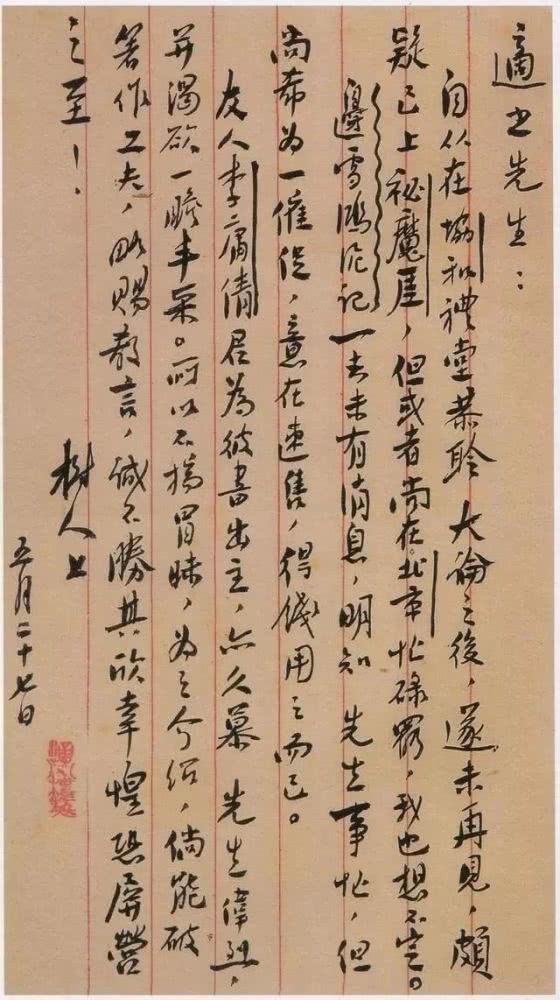 適之先生：
自从在協和禮堂恭聆 大論之後，遂未再見，頗
疑已上秘魔厓，但或者尚在北京忙碌罷，我也想不定。
邊雪鴻泥記一去未有消息，明知 先生事忙，但
尚希为一催促，意在速售，得錢用之而已。
友人李庸倩君為彼書出主，亦久慕 先生偉烈，
并渴欲一瞻丰采。所以不揣冒昧，为之介紹，倘能破
著作工夫，略賜教言，誠不勝其欣幸惶恐屏營
之至！
樹人上
五月二十七日